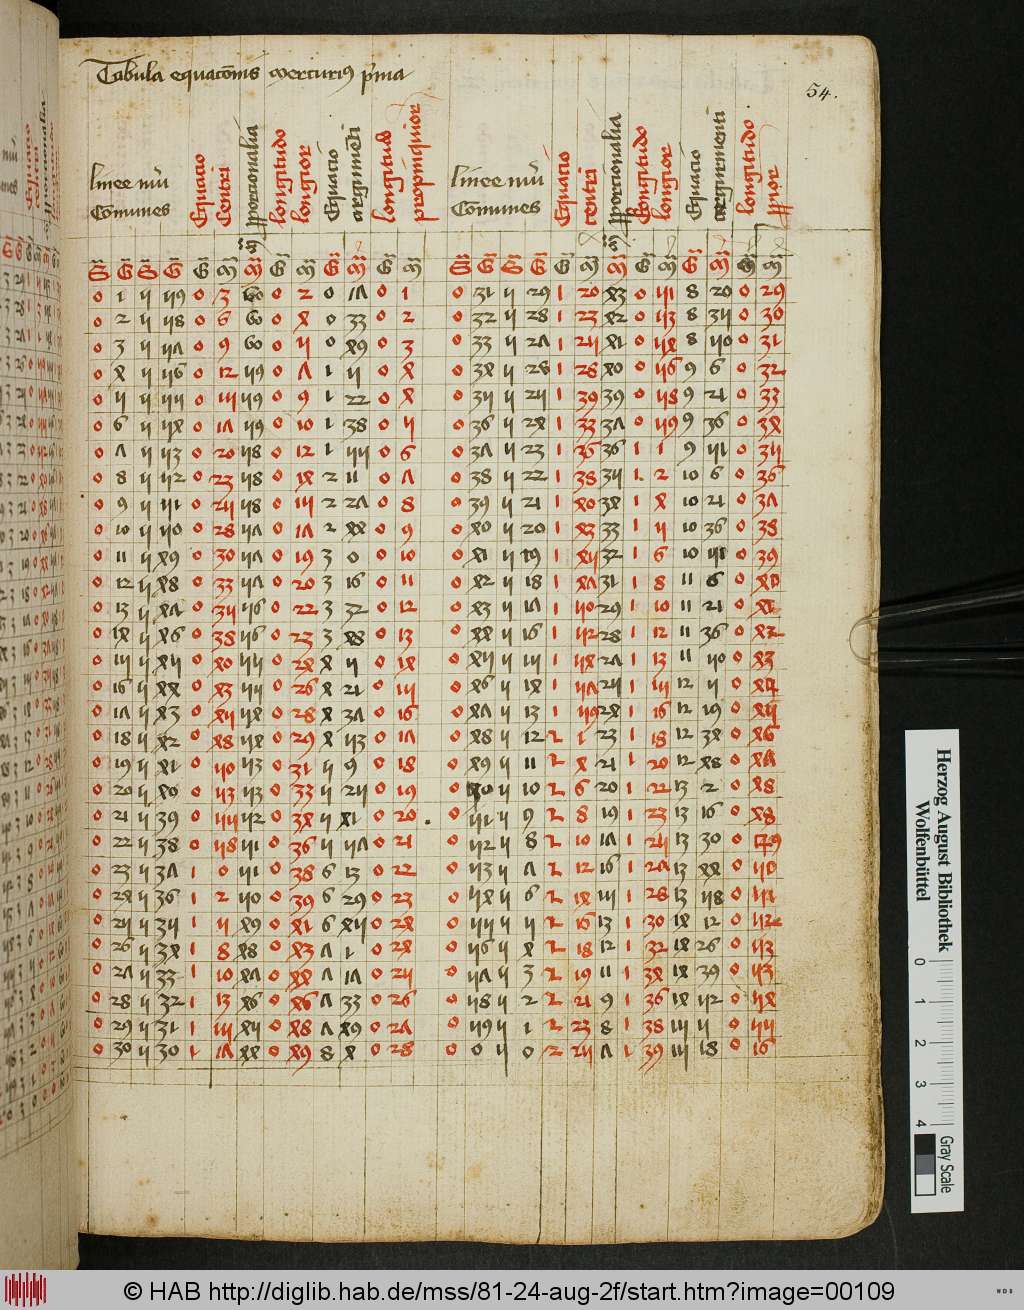 Tabula equacōnis mercurij p̄ma
54.
linee nūi Comunes
Equacio Centri
p̱porcionalia
longitudo longior
Equacio argumēti
longitudo propinquior
linee nūi Comunes
Equacio centri
p̱porcionalia
longitudo longior
Equacio argumenti
longitudo p̱pior
S G S G G M M G M G M G M S G S G G M M G M G M G M
0 1 5 59 0 3 60 0 2 0 17 0 1 0 31 5 29 1 20 43 0 51 8 20 0 29
0 2 5 58 0 6 60 0 4 0 33 0 2 0 32 5 28 1 23 42 0 53 8 35 0 30
0 3 5 57 0 9 60 0 5 0 49 0 3 0 33 5 27 1 25 41 0 54 8 50 0 31
0 4 5 56 0 12 59 0 7 1 5 0 4 0 34 5 26 1 28 40 0 56 9 6 0 32
0 5 5 55 0 15 59 0 9 1 22 0 4 0 35 5 25 1 39 39 0 58 9 21 0 33
0 6 5 54 0 17 59 0 10 1 38 0 5 0 36 5 24 1 33 37 0 59 9 36 0 34
0 7 5 53 0 20 58 0 12 1 55 0 6 0 37 5 23 1 36 36 1 1 9 51 0 35
0 8 5 52 0 23 58 0 14 2 11 0 7 0 38 5 22 1 38 35 1 2 10 6 0 36
0 9 5 51 0 25 58 0 15 2 27 0 8 0 39 5 21 1 40 34 1 4 10 21 0 37
0 10 5 50 0 28 57 0 17 2 44 0 9 0 40 5 20 1 43 33 1 5 10 36 0 38
0 11 5 49 0 30 57 0 19 3 0 0 10 0 41 5 19 1 45 32 1 6 10 51 0 39
0 12 5 48 0 33 57 0 20 3 16 0 11 0 42 5 18 1 47 31 1 8 11 6 0 40
0 13 5 47 0 35 56 0 22 3 32 0 12 0 43 5 17 1 50 29 1 10 11 21 0 41
0 14 5 46 0 38 56 0 23 3 48 0 13 0 44 5 16 1 52 28 1 12 11 36 0 42
0 15 5 45 0 40 55 0 24 4 5 0 14 0 45 5 15 1 54 27 1 13 11 50 0 43
0 16 5 44 0 43 55 0 26 4 21 0 15 0 46 5 14 1 57 25 1 15 12 5 0 44
0 17 5 43 0 45 54 0 28 4 37 0 16 0 47 5 13 1 59 24 1 16 12 19 0 45
0 18 5 42 0 48 54 0 29 4 53 0 17 0 48 5 12 2 1 23 1 18 12 34 0 46
0 19 5 41 0 50 53 0 31 5 9 0 18 0 49 5 11 2 4 21 1 20 12 48 0 47
0 20 5 40 0 53 53 0 33 5 25 0 19 0 50 5 10 2 6 20 1 22 13 2 0 48
0 21 5 39 0 55 52 0 34 5 41 0 20 0 51 5 9 2 8 19 1 23 13 16 0 48
0 22 5 38 0 58 51 0 36 5 57 0 21 0 52 5 8 2 10 17 1 25 13 30 0 49
0 23 5 37 1 0 51 0 38 6 13 0 22 0 53 5 7 2 12 16 1 27 13 44 0 50
0 24 5 36 1 2 50 0 39 6 29 0 23 0 54 5 6 2 14 15 1 28 13 58 0 51
0 25 5 35 1 5 49 0 41 6 45 0 24 0 55 5 5 2 16 13 1 30 14 12 0 52
0 26 5 34 1 8 48 0 43 7 1 0 24 0 56 5 4 2 18 12 1 32 14 26 0 53
0 27 5 33 1 10 47 0 44 7 17 0 25 0 57 5 3 2 19 11 1 34 14 39 0 53
0 28 5 32 1 13 46 0 46 7 33 0 26 0 58 5 2 2 21 9 1 36 14 52 0 54
0 29 5 31 1 15 45 0 48 7 49 0 27 0 59 5 1 2 23 8 1 38 15 5 0 55
0 30 5 30 1 17 44 0 49 8 4 0 28 0 0 5 0 2 25 7 1 39 15 18 0 56
Herzog August Bibliothek
Wolfenbüttel
0 1 2 3 4
Gray Scale
© HAB http://diglib.hab.de/mss/81-24-aug-2f/start.htm?image=00109